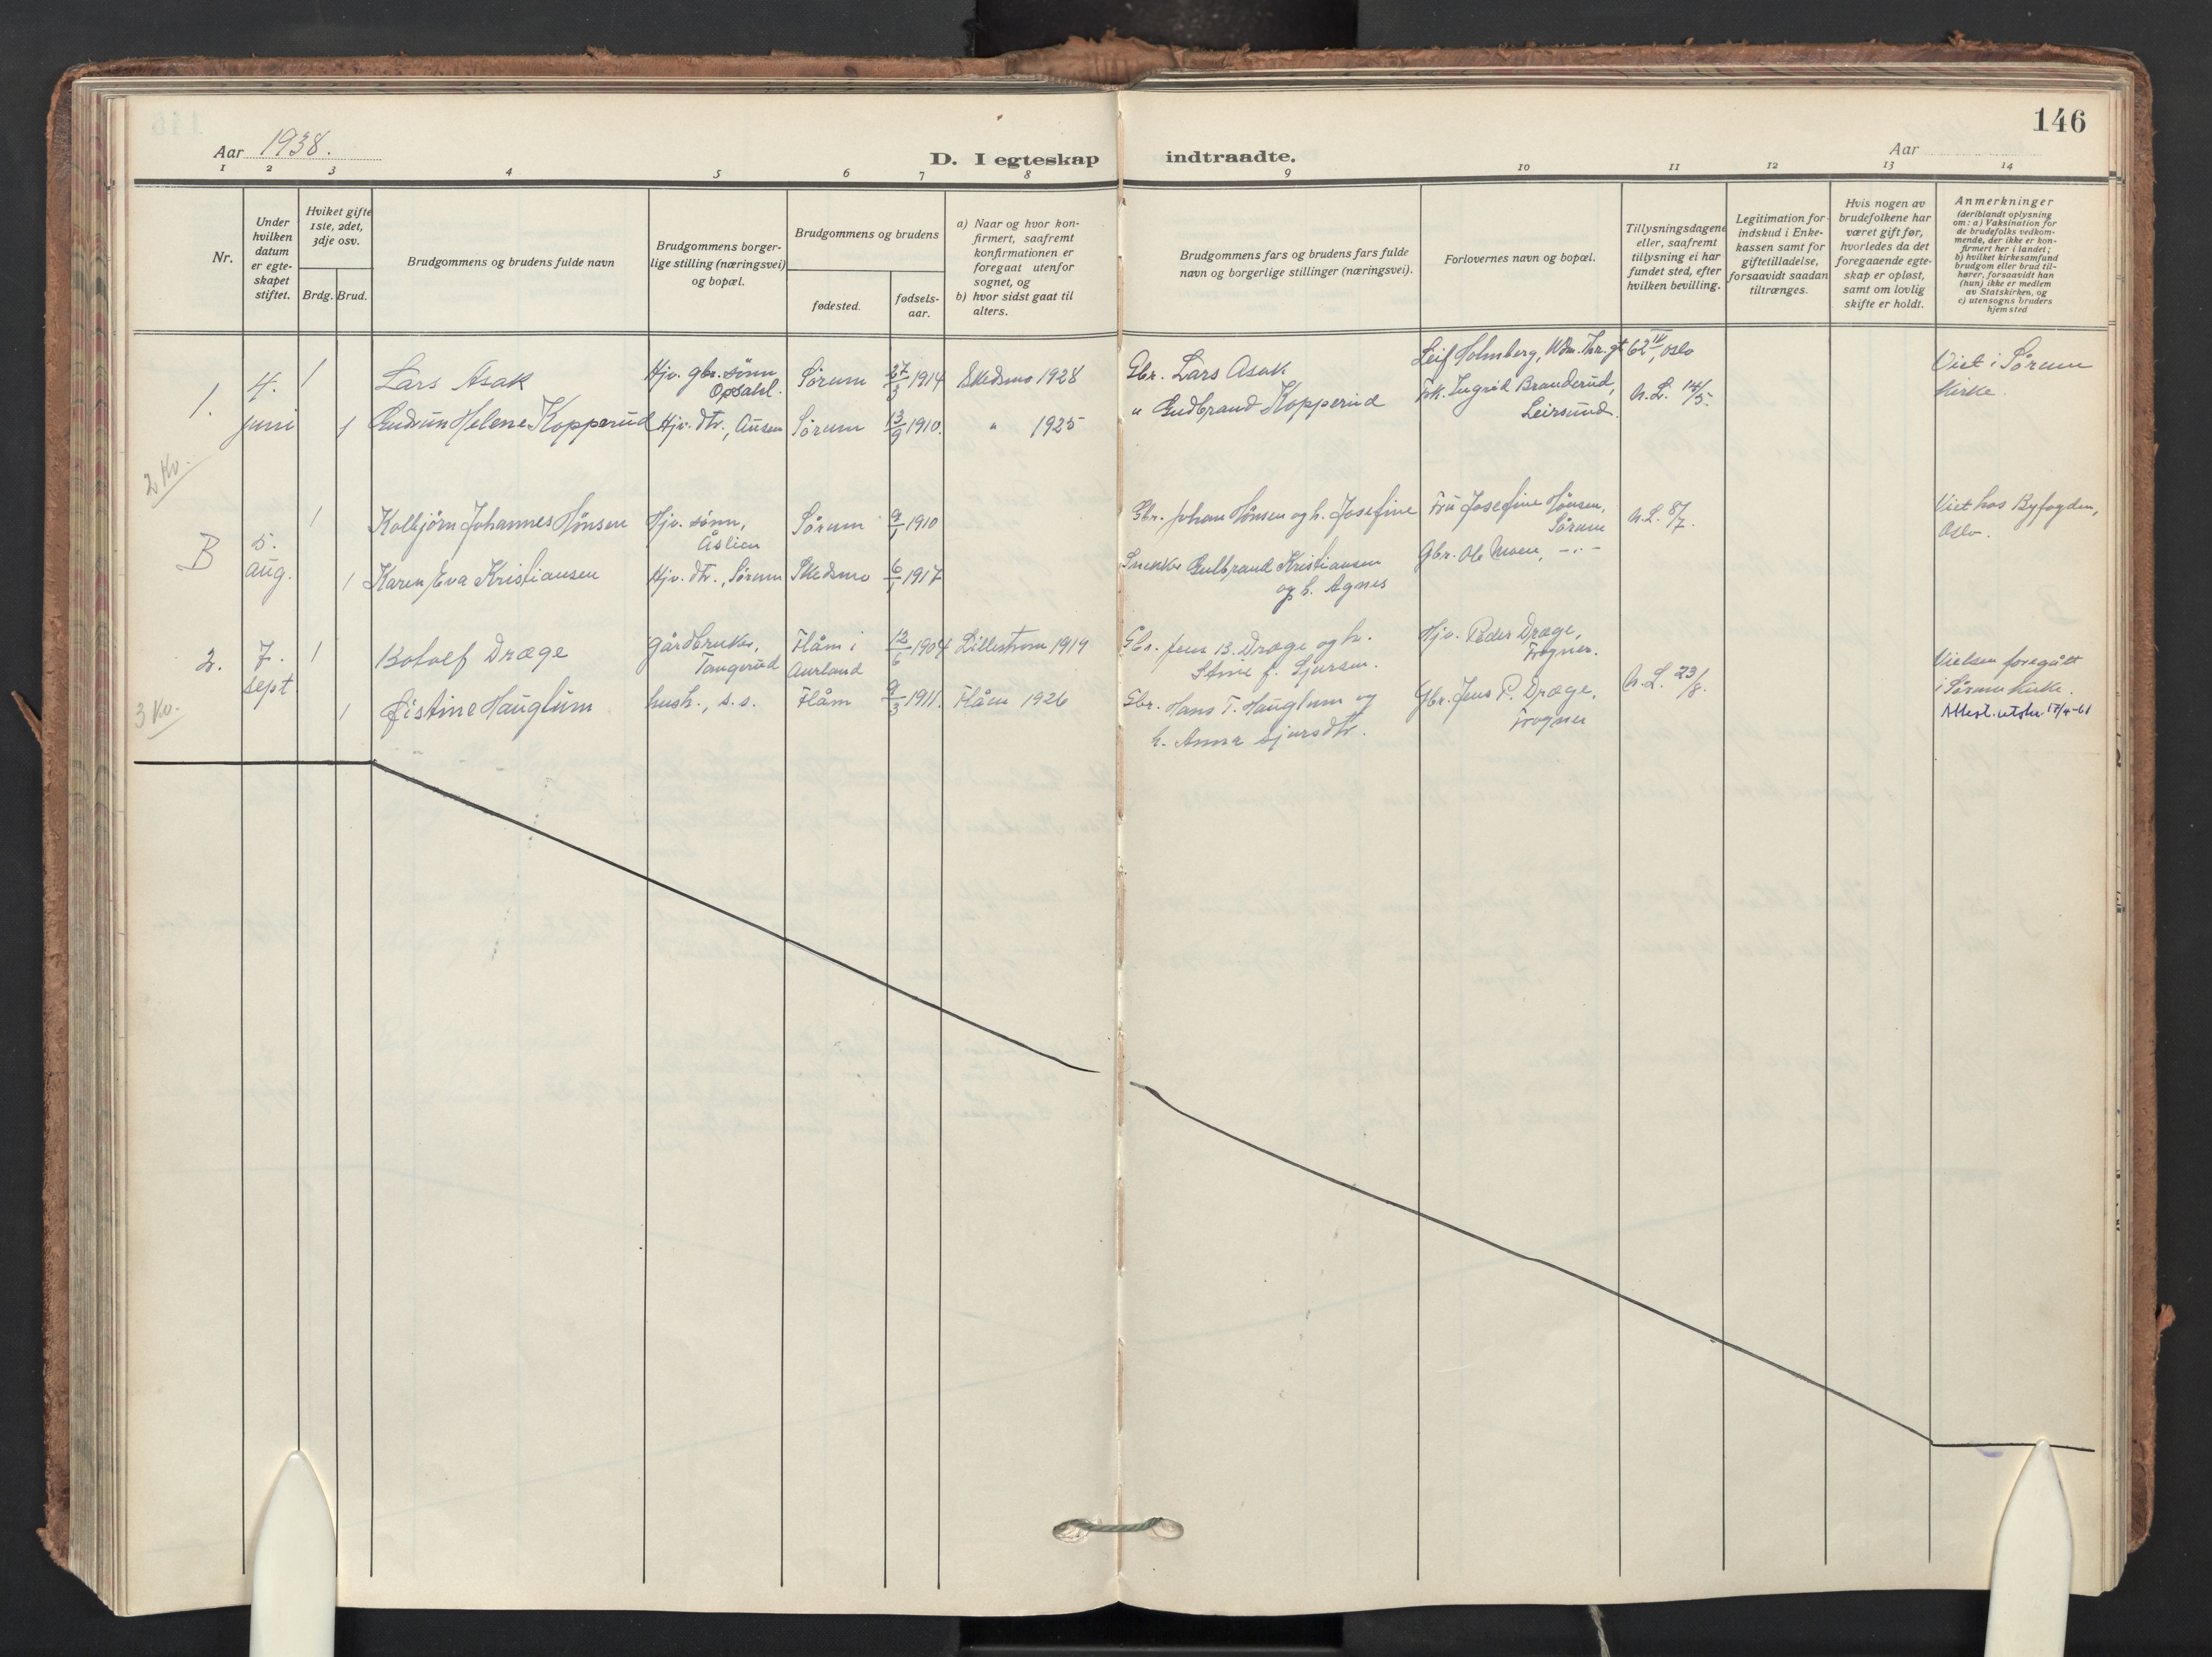 146
Aar 1938.
D. I egteskap indtraadte.
Aar
1 2 3 4 5 6 7 8 9 10 11 12 13 14
Nr.
Under
hvilken
datum
er egte-
skapet
stiftet.
Hviket gifte
1ste, 2det,
3dje osv.
Brdg. Brud.
Brudgommens og brudens fulde navn
Brudgommens borger-
lige stilling (næringsvei)
og bopæl.
Brudgommens og brudens
fødested.
fødsels-
aar.
a) Naar og hvor kon-
firmert, saafremt
konfirmationen er
foregaat utenfor
sognet, og
b) hvor sidst gaat til
alters.
Brudgommens fars og brudens fars fulde
navn og borgerlige stillinger (næringsvei).
Forlovernes navn og bopæl.
Tillysningsdagene
eller, saafremt
tillysning ei har
fundet sted, efter
hvilken bevilling.
Legitimation for
indskud i Enke-
kassen samt for
giftetilladelse,
forsaavidt saadan
tiltrænges.
Hvis nogen av
brudefolkene har
været gift før,
hvorledes da det
foregaaende egte-
skap er opløst,
samt om lovlig
skifte er holdt.
Anmerkninger
(deriblandt oplysning
om: a) Vaksination for
de brudefolks vedkom-
mende, der ikke er kon-
firmert her i landet;
b) hvilket kirkesamfund
brudgom eller brud til-
hører, forsaavidt han
(hun) ikke er medlem
av Statskirken, og
c) utensogns bruders
hjemsted
1.
4.
juni
1
Lars Asak
Hjv. gbr. sønn
Opsahl.
Sørum
27/3 1914
Skedsmo 1928
Gbr. Lars Asak
Leif Holmberg, Wdm. Thr. gt 62 IV, Oslo
Viet i Sørum
Kirke.
1
Gudrun Helene Kopperud
Hjv. dtr., Ausen
Sørum
13/9 1910.
" 1925
" Gudbrand Kopperud
Frk. Ingrid Branderud,
Leirsund.
N.L. 14/5.
2 Kv.
B
5.
aug.
1
Kolbjørn Johannes Hønsen
Hjv. sønn,
Åslien
Sørum
9/1 1910
Gbr. Johan Hønsen og h. Josefine
Fru Josefine Hønsen,
Sørum
N.L. 8/7.
Viet hos Byfogden,
Oslo.
1
Karen Eva Kristiansen
Hjv. dtr., Sørum
Skedsmo
6/1 1917
Snekker Gulbrand Kristiansen
og h. Agnes
Gbr. Ole Moen, -"-
2.
7.
sept.
1
Botolf Dræge
gårdbruker,
Tangerud
Flåm i
Aurland
12/6 1904
Lillestrøm 1919
Gbr. Jens B. Dræge og h.
Stine f. Sjursen.
Hjv. Peder Dræge,
Frogner.
N.L. 23/8.
Vielsen foregått
i Sørum kirke.
Attest. utstr. 17/4-61
1
Øistine Hauglum
hush., s.s.
Flåm
9/3 1911.
Flåm 1926
Gbr. Hans T. Hauglum og
h. Anna Sjursdtr.
Gbr. Jens P. Dræge,
Frogner
3 Kv.